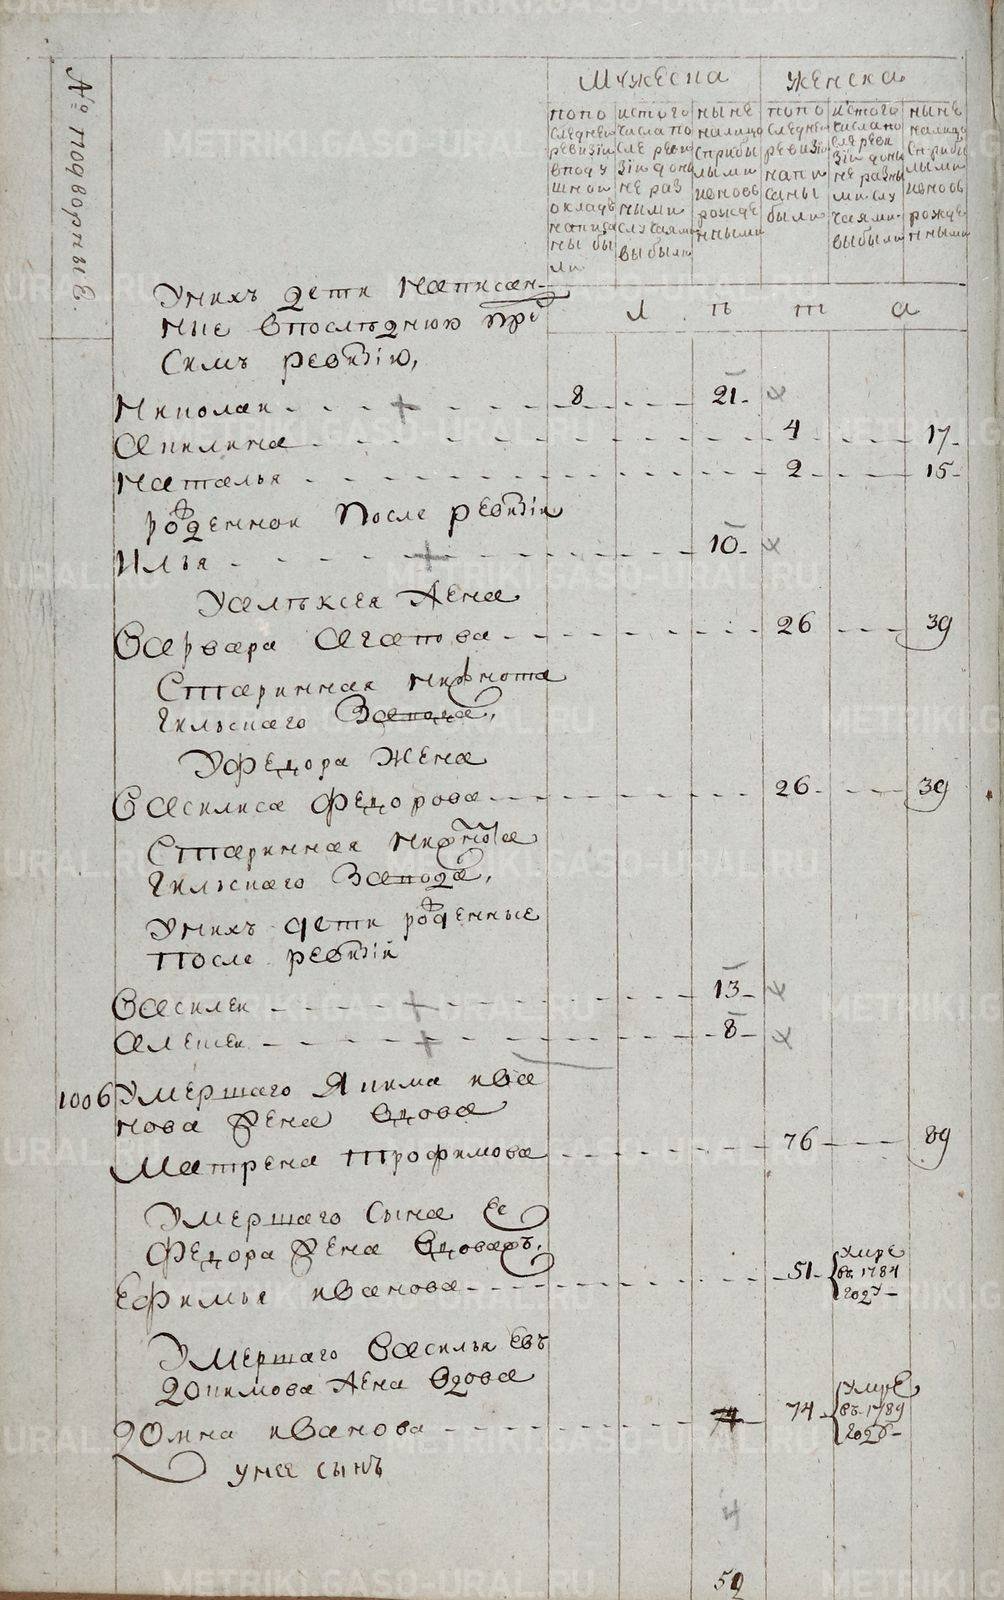 № подворныЕ.
Мужеска
женска
попо
следнеи
ревизiи
вподу
шнои
окладъ
написа
ны бы
ли
истого
числа по
сле реви
зiи доны
не раз
ными
случаями
выбыли
ныне
налицо
сприбы
лыми
ивновь
рожде
нными
попо
следней
ревизiи
напи
саны
были
истого
числапо
сле реви
зiи доны
не разны
ми слу
чаями
выбыли
ныне
налицо
сприбы
лыми
ивновь
рожде
нными
л ѣ т а
Унихъ дети написан-
ние впоследнюю пре
Симъ ревизiю,
Николаи - - - 8 - - - 21 -
Акилина - - - 4 - - - 17 -
наталья - - - 2 - - - 15 -
рожденнои После ревизiи
Илья - - - 10 -
Уалѣксея Жена
Варвара Агапова - - - 26 - - - 39
Старинная нижнота
гильскаго Завода,
УФедора Жена
Василиса Федорова - - - 26 - - - 39
Старинная нижнота
гильскаго Завода,
Унихъ дети рожденные
После ревизiи
Василеи - - - 13 -
Алексеи - - - 8 -
1006 Умершаго Якима ива
нова Жена вдова
Матрена трофимова - - - 76 - - - 89
Умершаго Сына Ее
Федора Жена вдовахъ,
Ефимья иванова - - - 51 - Умре
въ 1784
году -
Умершаго Василья Евъ
докимова Жена Вдова
Домна иванова - - - 74 - Умре
въ 1789
году -
унее сынъ
4
52
METRIKI.GASO-URAL.RU